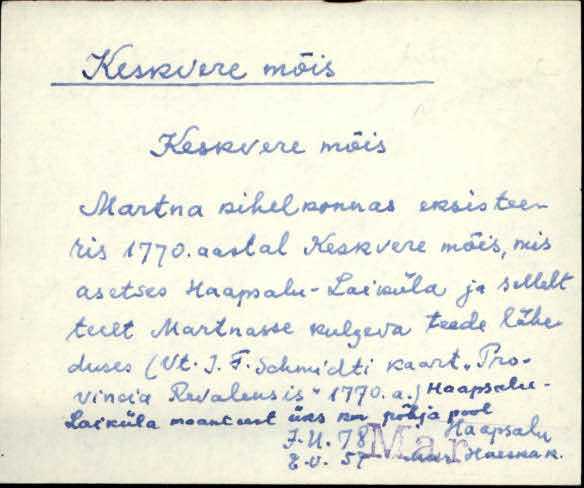 Keskvere mõis
Keskvere mõis
Martna kihelkonnas eksistee-
ris 1770. aastal Keskvere mõis, mis
asetses Haapsalu-Laiküla ja sellelt
teelt Martnasse kulgeva teede lähe-
duses (Vt. J. F. Schmidti kaart „Pro-
vincia Revalensis" 1770. a.) Haapsalu-
Laiküla maanteest üks km põhja pool
J.U. 78 Haapsalu
E.V. 57
Mar